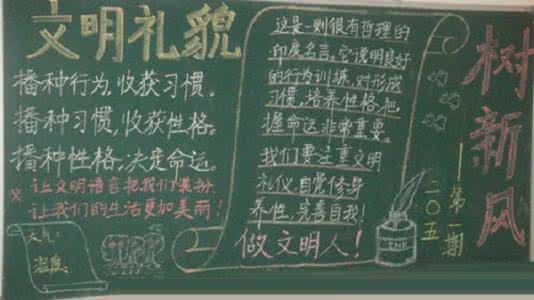 文明礼貌
播种行为,收获习惯。
播种习惯,收获性格。
播种性格,决定命运。
让文明语言把我们装扮
让我们的生活更加美丽!
天气:
温度:
这是一则很有哲理的
印度名言。它说明良好
的行为训练,对形成
习惯,培养性格,把
握命运非常重要。
我们要注重文明
礼仪,自觉修身
养性,完善自我!
做文明人!
INK
树新风
第一期
二〇五